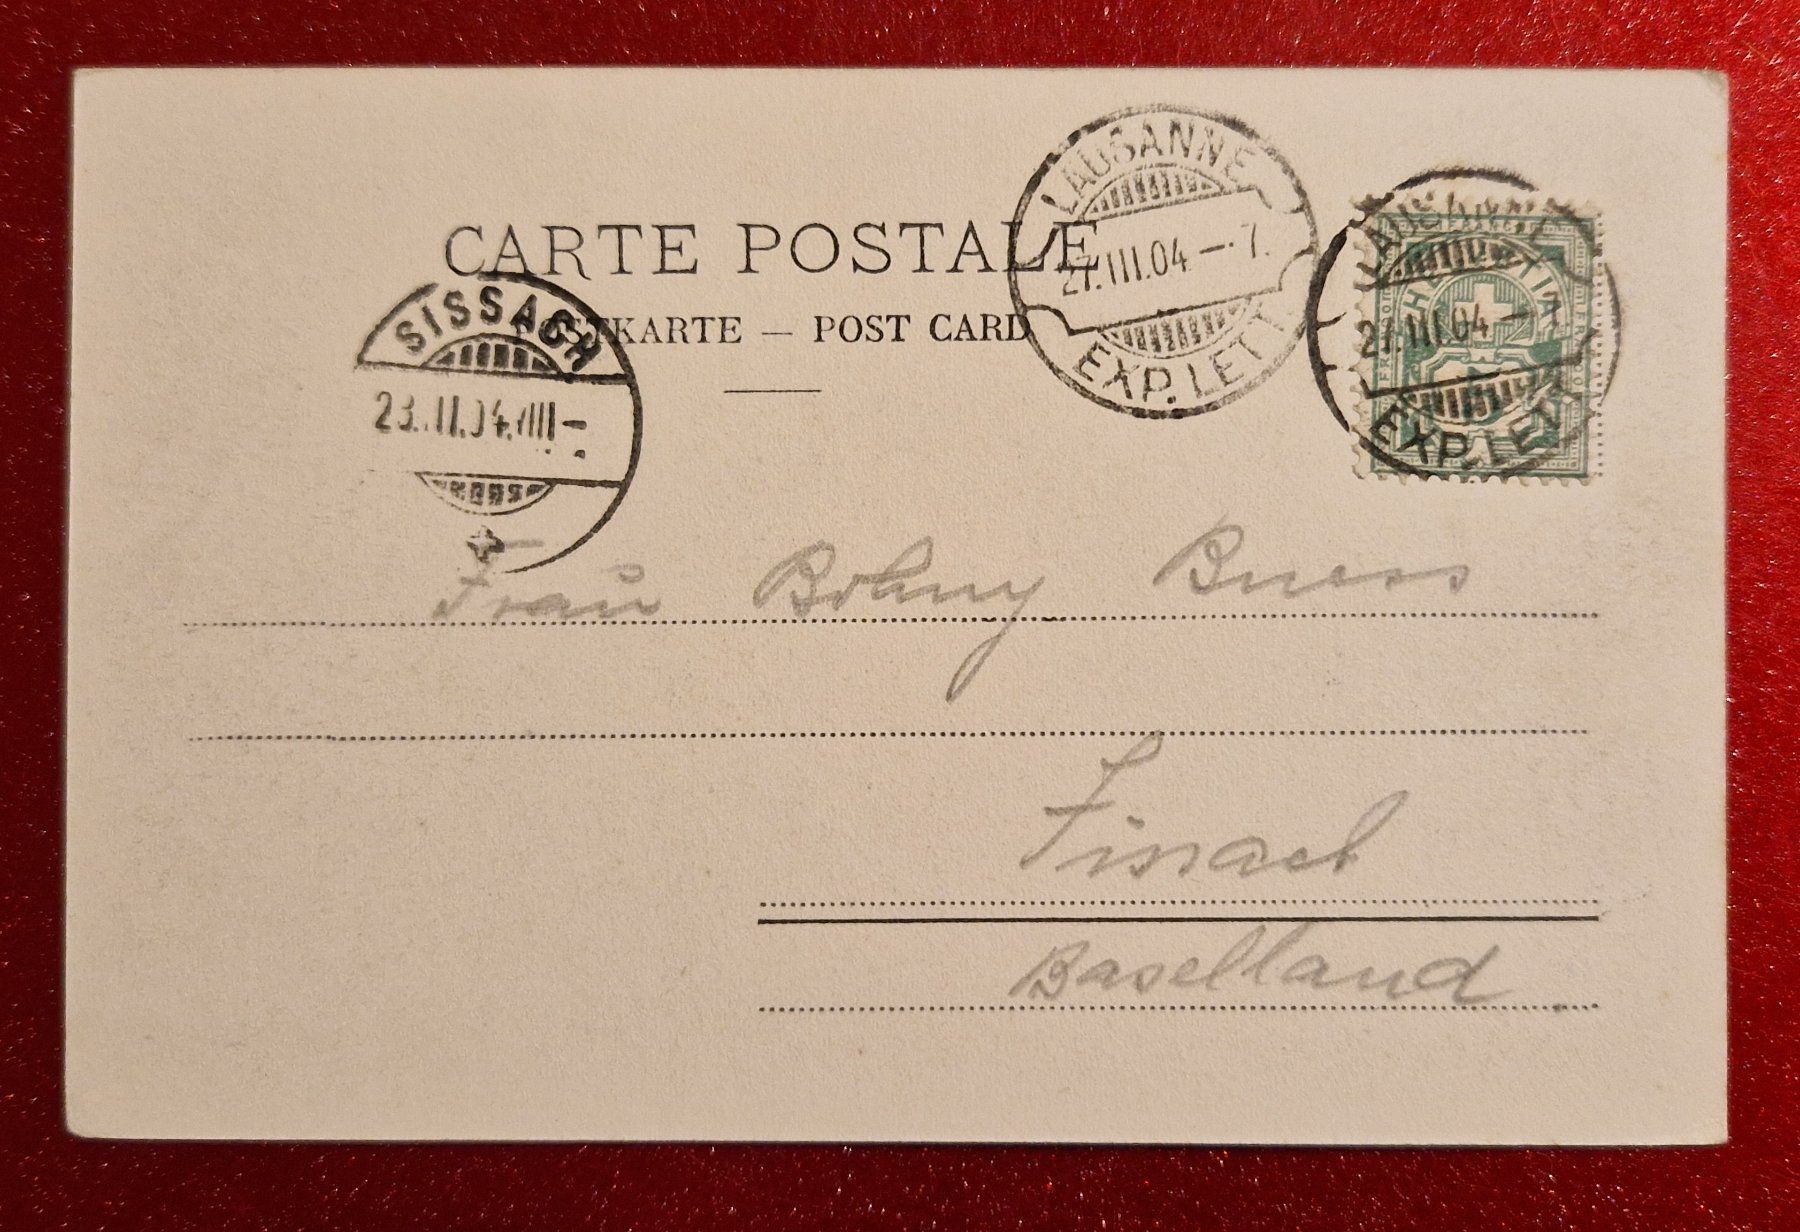 CARTE POSTALE
POSTKARTE — POST CARD
LAUSANNE
27.III.04 — 7.
EXP. LETT.
LAUSANNE
27.III.04 — 7
EXP. LETT.
HELVETIA
FRANCO
SISSACH
Frau Bohny Buess
Sissach
Baselland